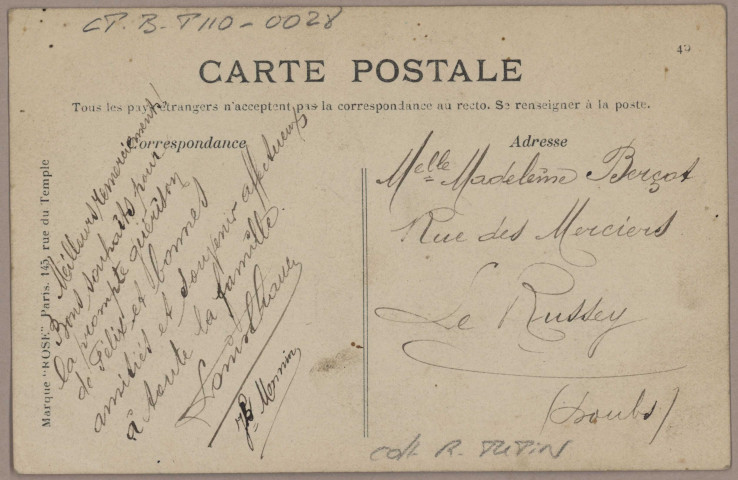 CP. B - P110 - 0028
CARTE POSTALE
Tous les pays étrangers n'acceptent pas la correspondance au recto. Se renseigner à la poste.
Correspondance
Adresse
Marque "ROSE" Paris. 145, rue du Temple
Meilleurs remerciements!
Bons souhaits pour
la prompte guérison
de Félix et bonnes
amitiés et souvenir affectueux
à toute la famille
Melle Madeleine Berçot
Rue des Merciers
Le Russey
(Doubs)
coll R. TUTIN